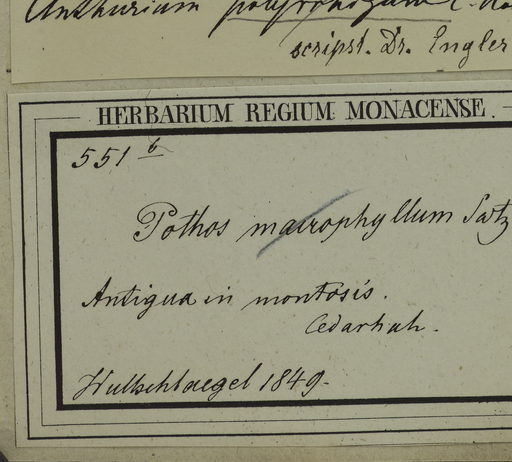 Anthurium
scripst. Dr. Engler
HERBARIUM REGIUM MONACENSE.
551 b
Pothos macrophyllum Swtz
Antigua in montosis.
Wullschlaegel 1849.